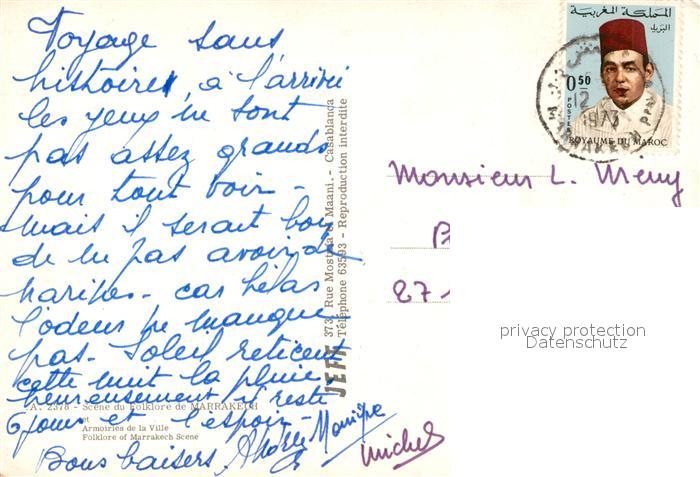 Voyage sans
histoires, à l'arrivée
les yeux ne sont
pas assez grands
pour tout voir -
mais il serait bon
de ne pas avoir de
narines - car hélas
l'odeur ne manque
pas - Soleil réticent
cette nuit la pluie
heureusement il reste
6 jours et l'espoir -
Bons baisers, Monique
Michel
A. 2378 - Scène du Folklore de MARRAKECH
et
Armoiries de la Ville
Folklore of Marrakech Scene
JEFF 373, Rue Mostafa el Maani. - Casablanca
Téléphone 63593 - Reproduction interdite
المملكة المغربية
البريد
0,50
POSTES
ROYAUME DU MAROC
12
1973
Monsieur L. Mémy
P
27
privacy protection
Datenschutz